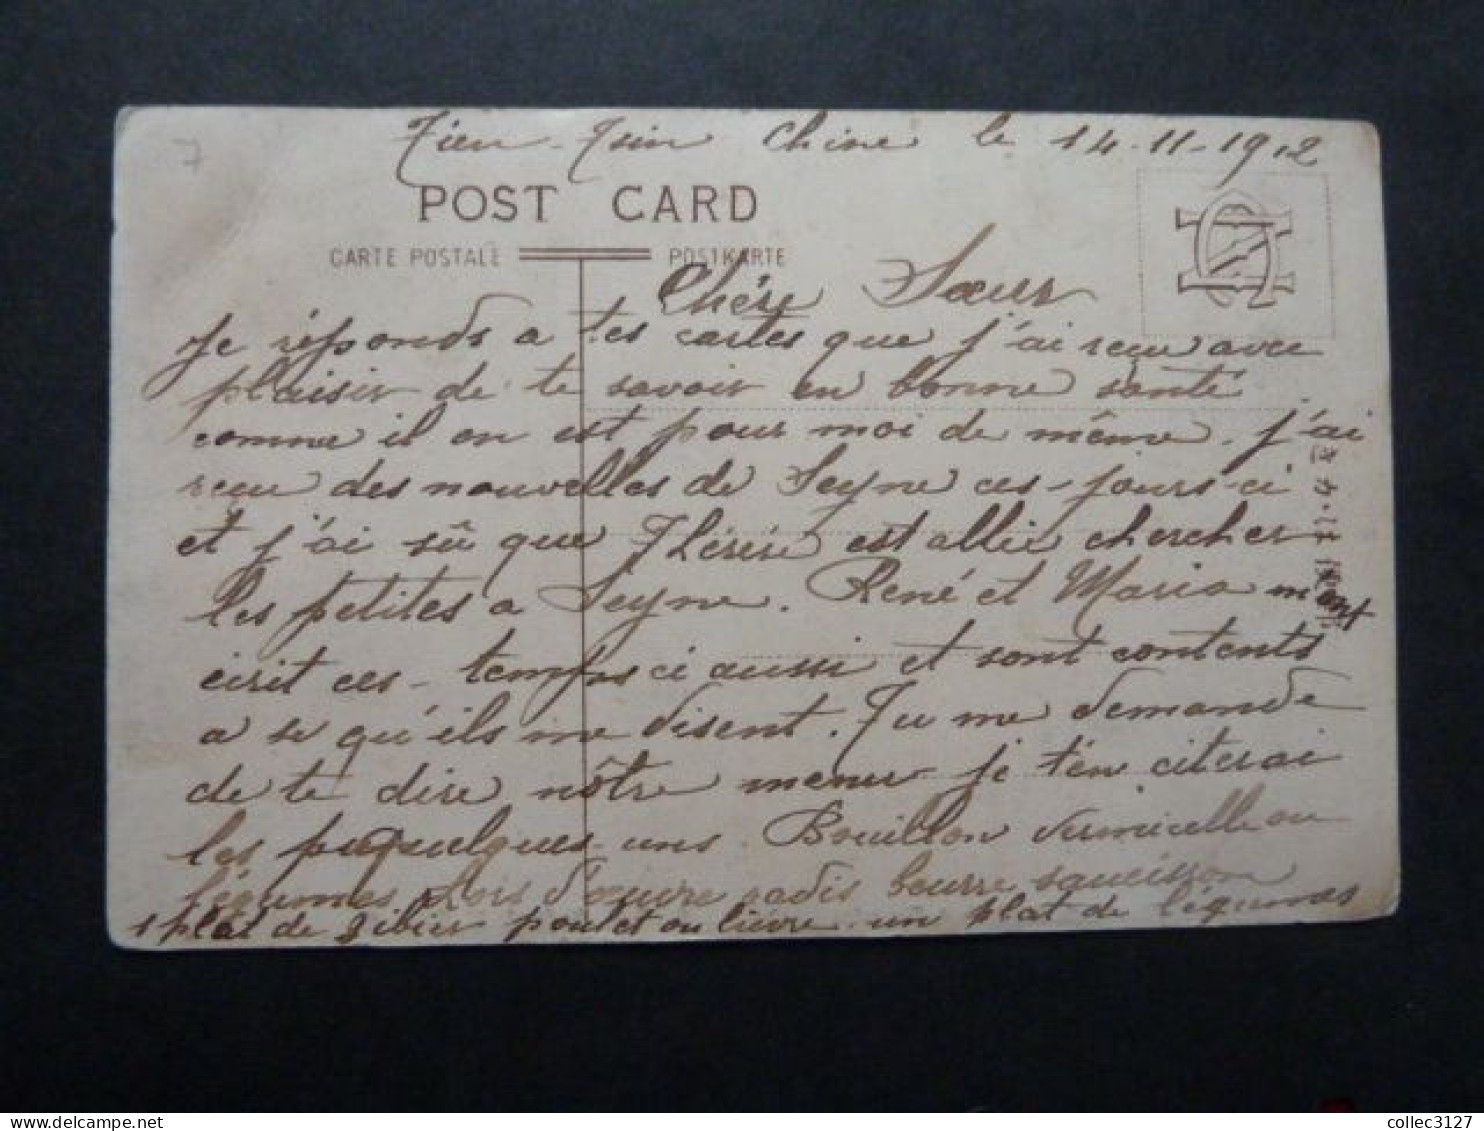 7
Tien-Tsin Chine le 14-11-1912
POST CARD
CARTE POSTALE POSTKARTE
Chère Sœur
Je réponds a tes cartes que j'ai reçu avec
plaisir de te savoir en bonne santé
comme il on est pour moi de même. J'ai
reçu des nouvelles de Seyne ces-jours-ci
et j'ai sû que Thérèse est allée chercher
les petites a Seyne. René et Maria m'ont
écrit ces-temps ci aussi et sont contents
a se qu'ils me disent. Tu me demande
de te dire nôtre menu je t'en citerai
les quelques-uns. Bouillon vermicelle ou
légumes Hors d'œuvre radis beurre saucisson
1 plat de gibier poulet ou lièvre un plat de légumes
collec3127